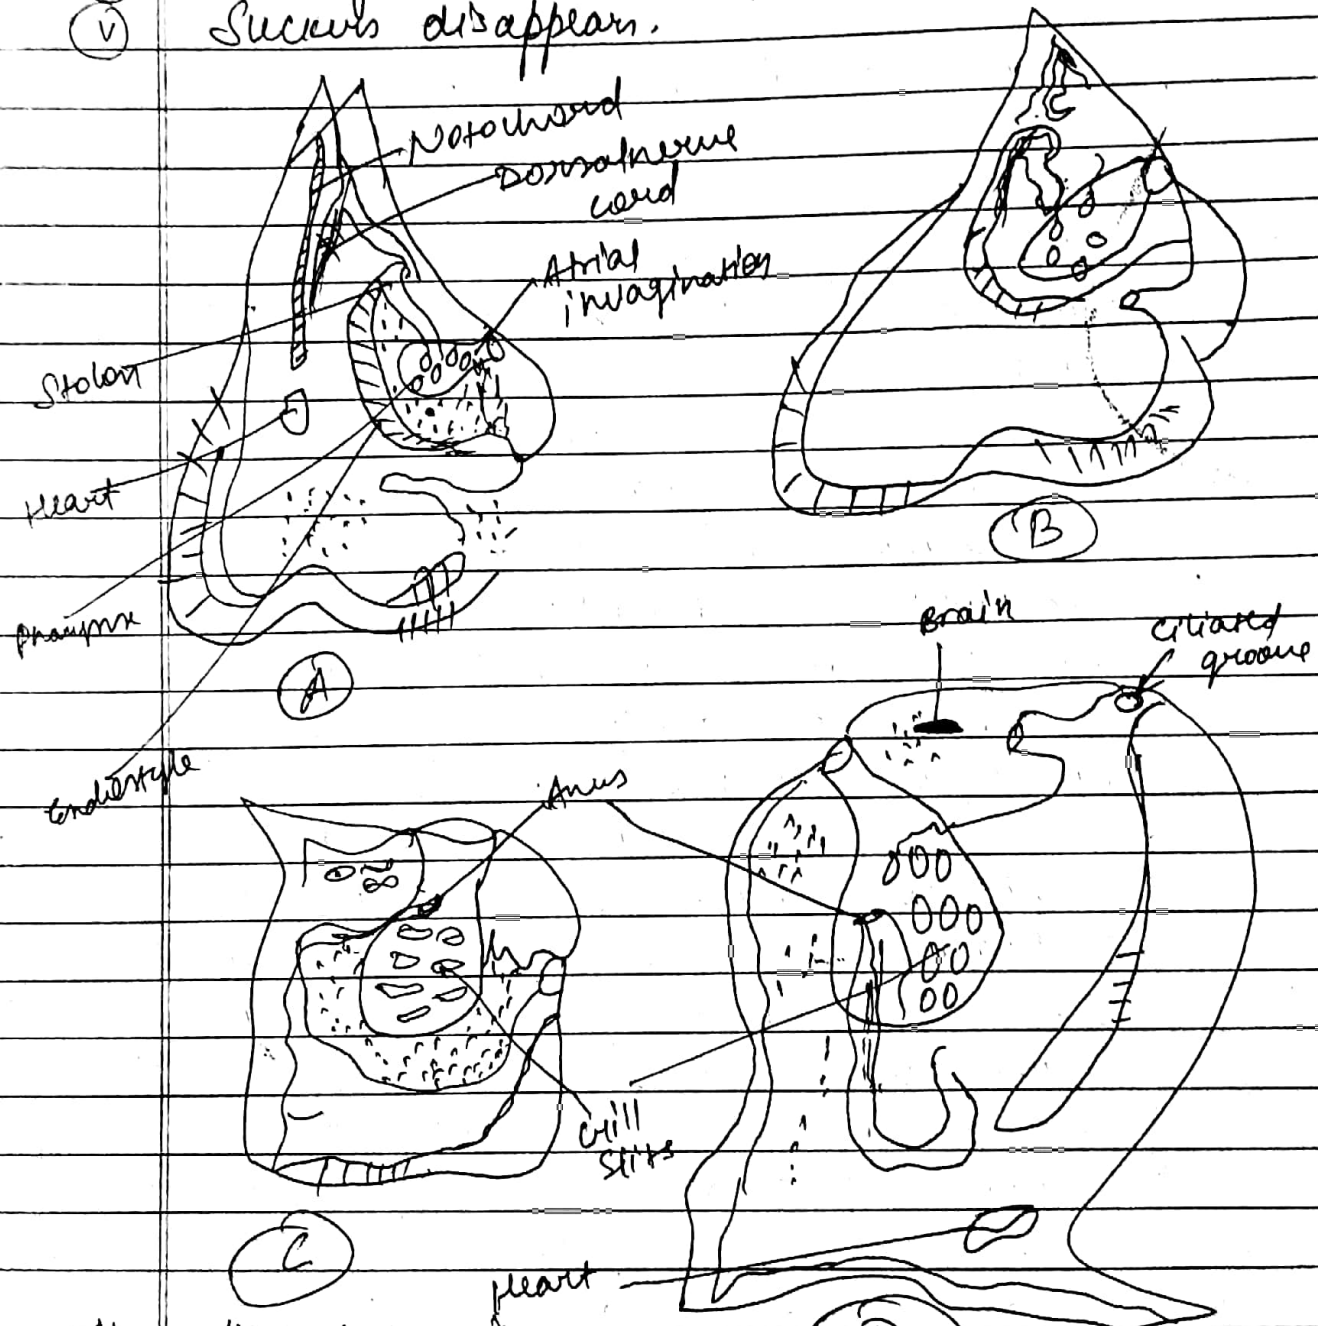 (v) Suckers disappears.
Notochord
Dorsalnerve
cord
Atrial
invagination
Stolon
Heart
Pharynx
Endostyle
A
B
Brain
Ciliated
groove
Anus
Gill
Slits
C
Heart